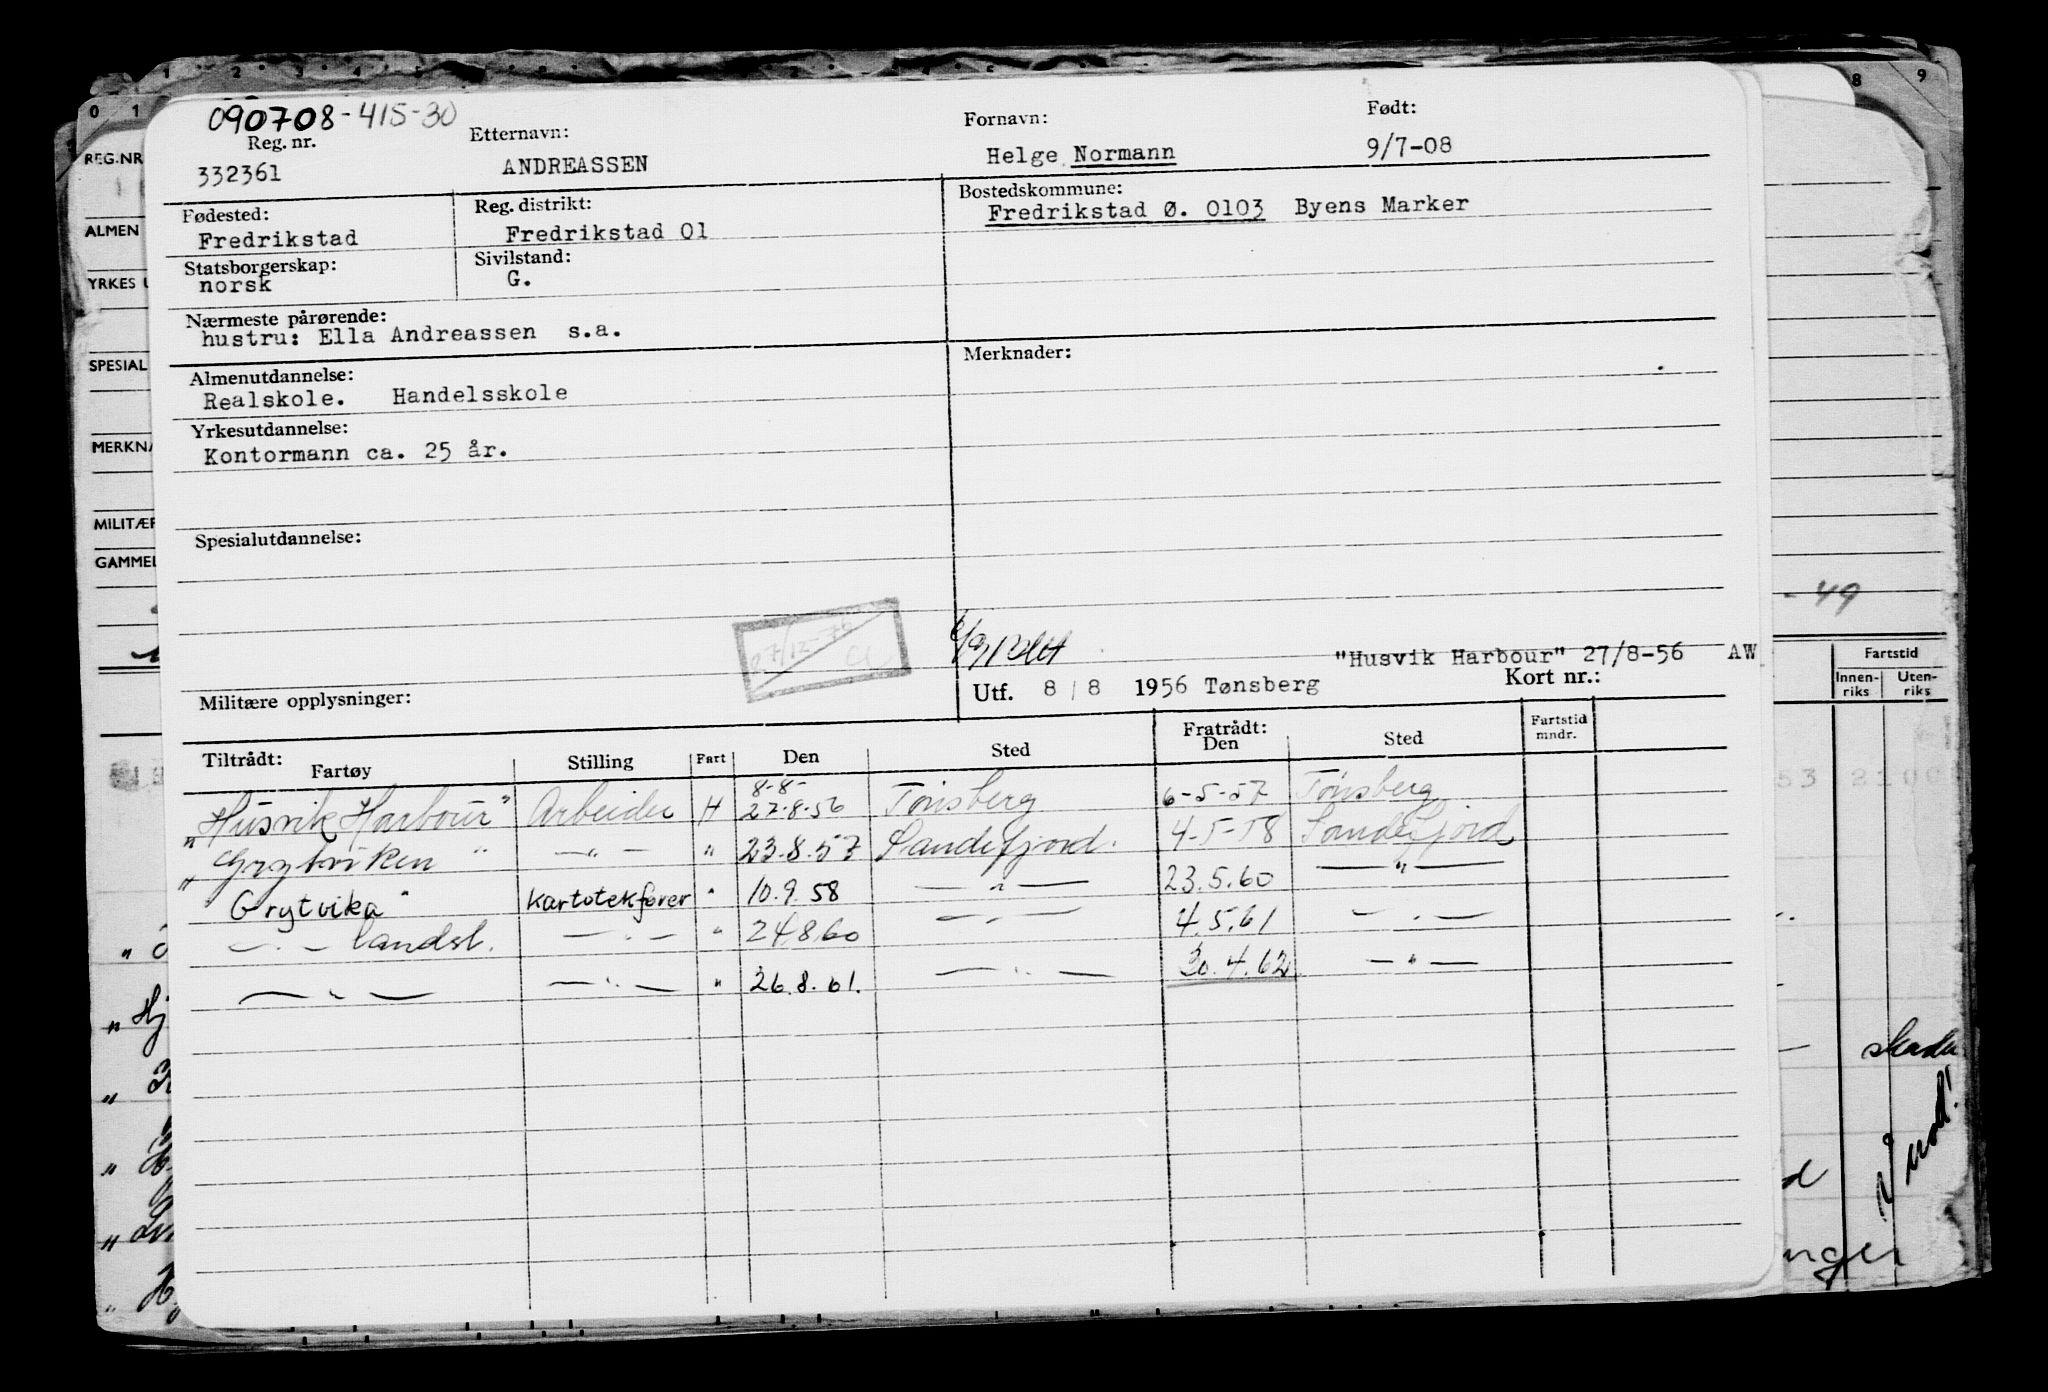 090708-415-30
Reg. nr. Etternavn: Fornavn: Født:
332361 ANDREASSEN Helge Normann 9/7-08
Fødested: Reg. distrikt: Bostedskommune:
Fredrikstad Fredrikstad 01 Fredrikstad Ø. 0103 Byens Marker
Statsborgerskap: Sivilstand:
norsk G.
Nærmeste pårørende:
hustru: Ella Andreassen s.a.
Almenutdannelse: Merknader:
Realskole. Handelsskole
Yrkesutdannelse:
Kontormann ca. 25 år.
Spesialutdannelse:
"Husvik Harbour" 27/8-56 AW
Militære opplysninger: Utf. 8/8 1956 Tønsberg Kort nr.:
Tiltrådt: Fartøy Stilling Fart Den Sted Fratrådt: Den Sted Fartstid mndr.
8-8-
"Husvik Harbour" Arbeider H 27.8.56 Tønsberg 6-5-57 Tønsberg
"Grytviken" —"— " 23.8.57 Sandefjord. 4-5-58 Sandefjord
Grytvika" Kartotekfører " 10.9.58 —"— 23.5.60 —"—
—"— landst. —"— " 24.8.60 —"— 4.5.61 —"—
—"— —"— " 26.8.61. —"— 30.4.62 —"—
0 1
REG.NR
ALMEN
YRKES U
SPESIAL
MERKNA
MILITÆR
GAMMEL
8 9
-49
Fartstid
Innen-riks Uten-riks